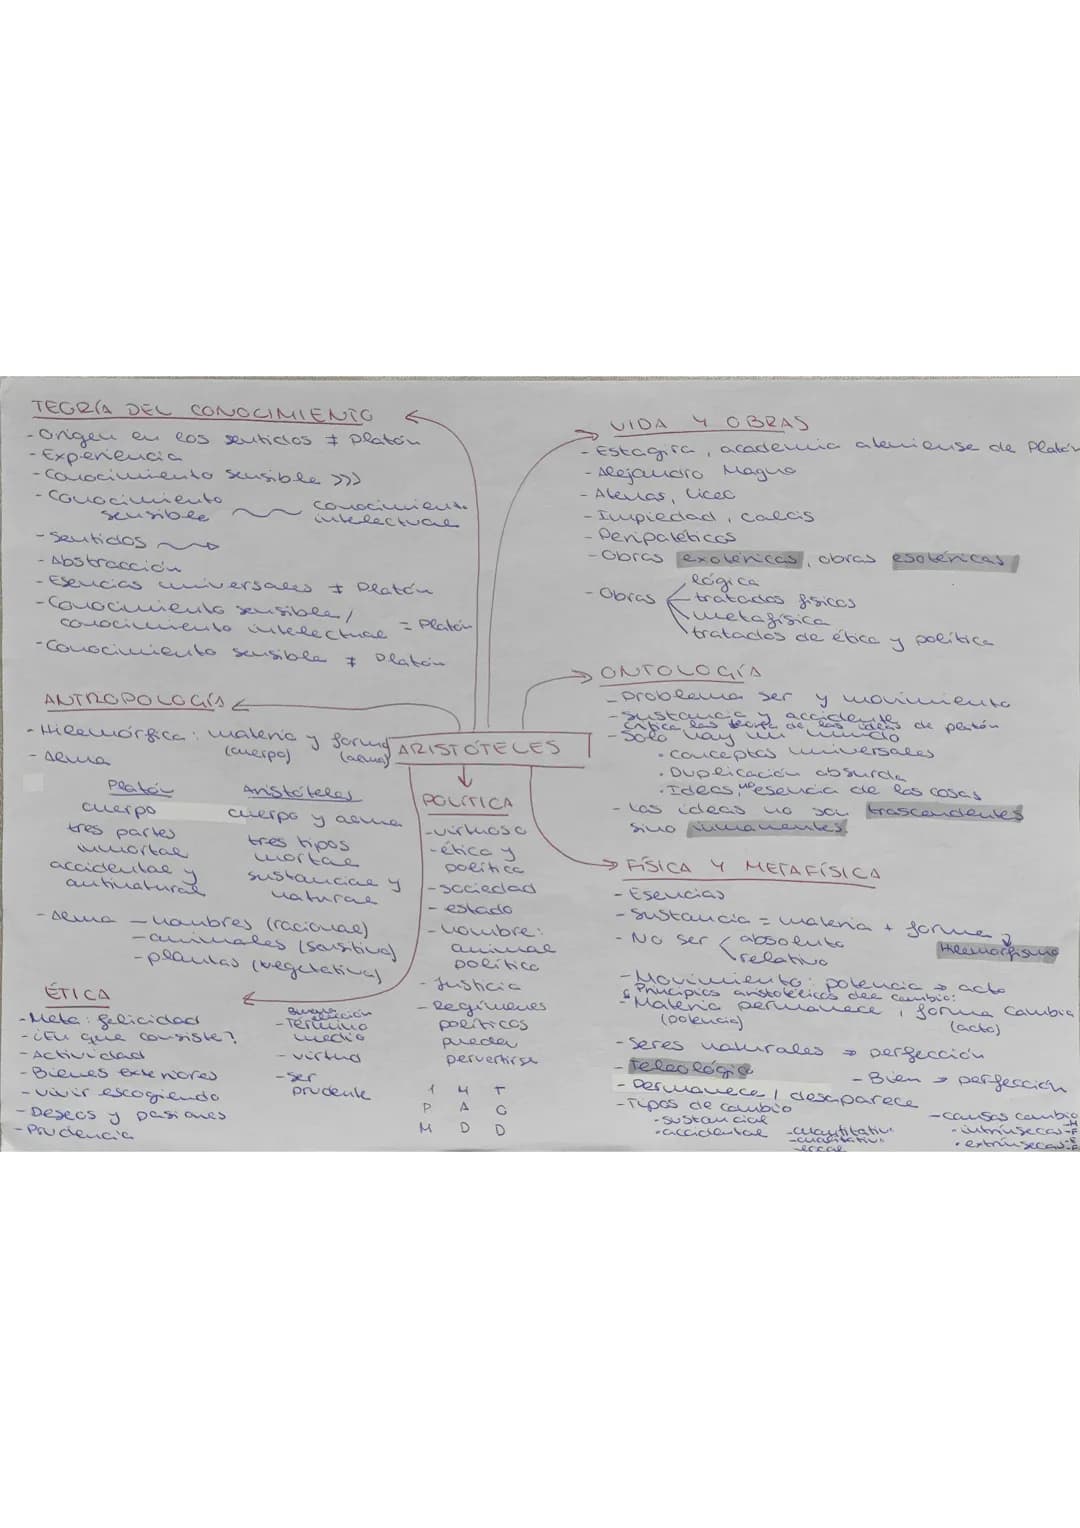 TEORÍA DEL CONOCIMIENTO
- Origen en los sentidos ≠ Platón
- Experiencia
- Conocimiento sensible >>>
- Conocimiento sensible
conocimiento intelectual
- Sentidos
- Abstracción
- Esencias universales ≠ Platón
- Conocimiento sensible /
conocimiento intelectual = Platón
- Conocimiento sensible ≠ Platón
ANTROPOLOGÍA
- Hilemórfica: materia y forma
(cuerpo) (alma)
- Alma
Platón
cuerpo
tres partes
inmortal
accidental y
antinatural
Aristóteles
cuerpo y alma
tres tipos
mortal
sustancial y
natural
- Alma - hombres (racional)
- animales (sensitiva)
- plantas (vegetativa)
ÉTICA
- Meta: felicidad
- ¿En que consiste?
- Actividad
- Bienes exteriores
- Vivir escogiendo
- Deseos y pasiones
- Prudencia
- Término
medio
- virtud
- ser
prudente
ARISTÓTELES
POLÍTICA
- virtuoso
- ética y
política
- sociedad
- estado
- hombre:
animal
político
- Justicia
- Regímenes
políticos
pueden
pervertirse
1 M T
P A O
M D D
VIDA Y OBRAS
- Estagira, academia ateniense de Platón
- Alejandro Magno
- Atenas, Liceo
- Impiedad, Calcis
- Peripatéticos
- Obras exotéricas, obras esotéricas
- Obras
lógica
tratados físicos
metafísica
tratados de ética y política
ONTOLOGÍA
- Problema ser y movimiento
- Sustancia y accidente
Critica las teoría de las ideas de platón
- Solo hay un mundo
· Conceptos universales
· Duplicación absurda
· Ideas, no esencia de las cosas
- Las ideas no son trascendentes
sino inmanentes
FÍSICA Y METAFÍSICA
- Esencias
- Sustancia = materia + forma
Hilemorfismo
- No ser
absoluto
relativo
- Movimiento: potencia → acto
Principios aristotélicos del cambio:
- Materia permanece, forma cambia
(potencia) (acto)
- Seres naturales → perfección
- Teleología
- Bien → perfección
- Permanece / desaparece
- Tipos de cambio
· sustancial
· accidental
- cuantitativo
- cualitativo
- local
- causas cambio
· intrínsecas
· extrínsecas